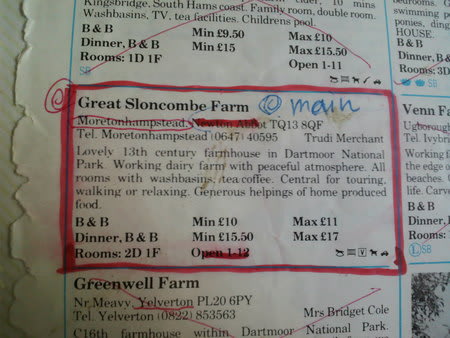 Kingsbridge, South Hams coast. Family room, double room.
Washbasins, TV, tea facilities. Childrens pool.
B & B Min £9.50 Max £10
Dinner, B & B Min £15 Max £15.50
Rooms: 1D 1F Open 1-11
SB
Great Sloncombe Farm @ main
Moretonhampstead, Newton Abbot TQ13 8QF
Tel. Moretonhampstead (0647) 40595 Trudi Merchant
Lovely 13th century farmhouse in Dartmoor National
Park. Working dairy farm with peaceful atmosphere. All
rooms with washbasins, tea/coffee. Central for touring,
walking or relaxing. Generous helpings of home produced
food.
B & B Min £10 Max £11
Dinner, B & B Min £15.50 Max £17
Rooms: 2D 1F Open 1-12
V
Greenwell Farm
Nr. Meavy, Yelverton PL20 6PY
Tel. Yelverton (0822) 853563 Mrs Bridget Cole
C16th farmhouse within Dartmoor National Park.
swimming
HOUSE.
B & B
Dinner, B
Rooms: 3D
SB
Venn Fa
Ugborough
Tel. Ivyb
Working f
the edge o
beaches.
life. Carve
B & B
Dinner, B
Rooms:
L SB